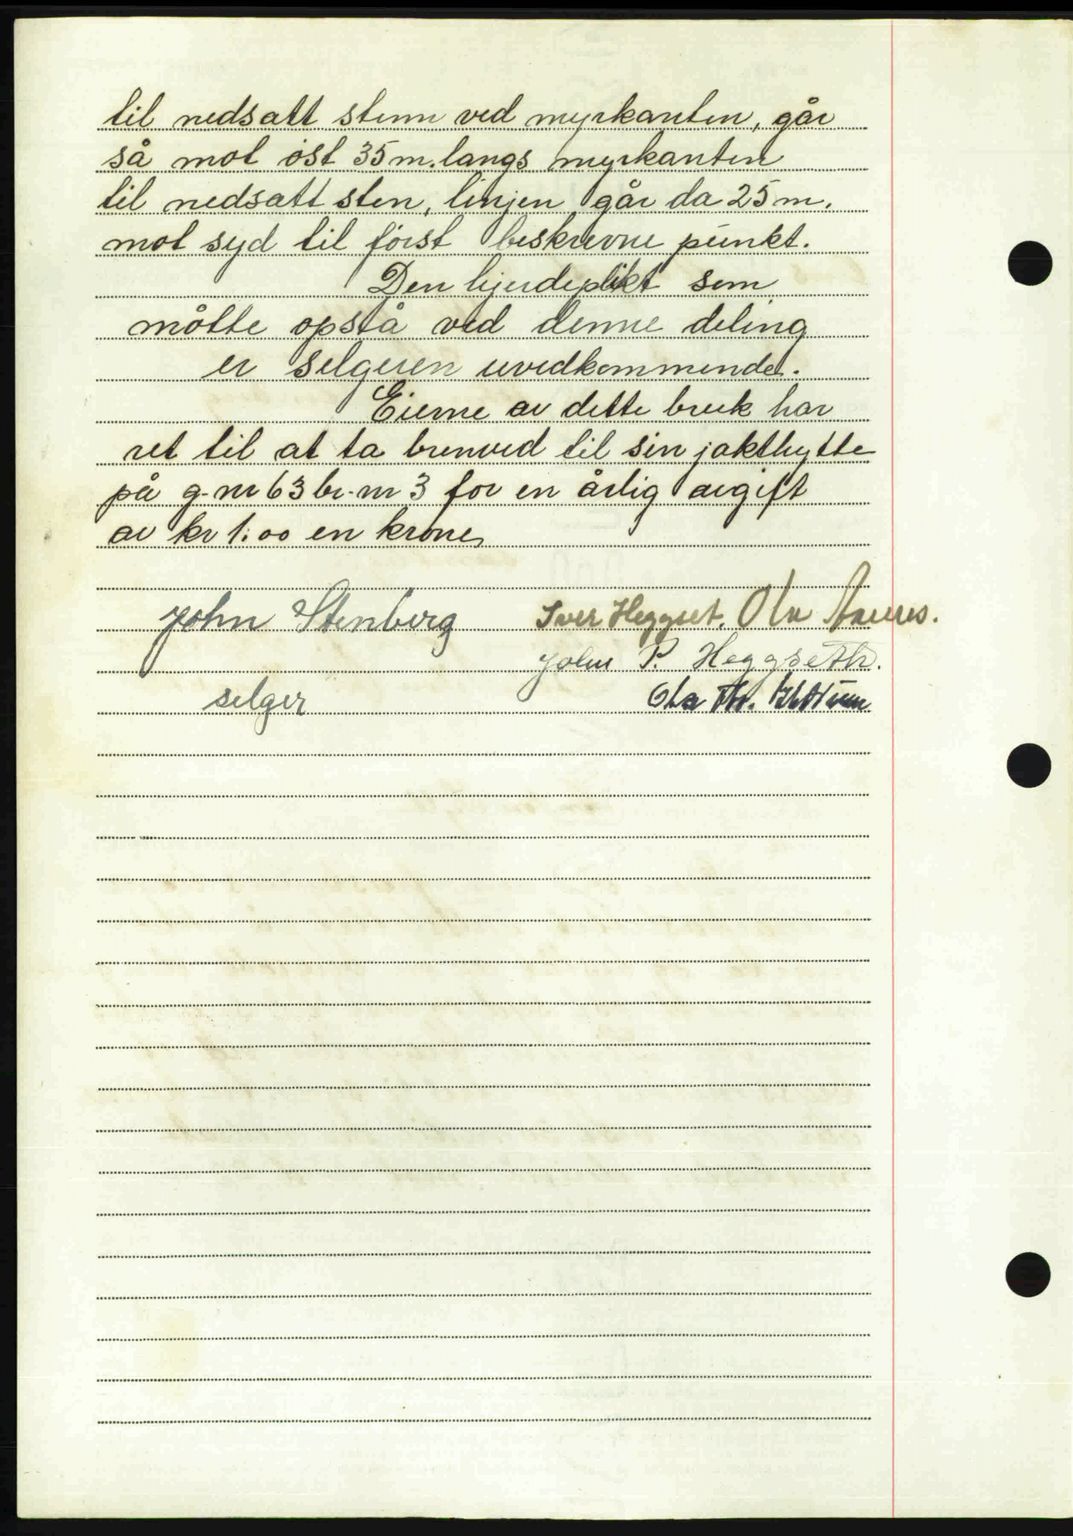 til nedsatt stenn ved myrkanten, går
så mot øst 35 m. langs myrkanten
til nedsatt sten, linjen går da 25 m.
mot syd til først beskrevne punkt.
Den hjerdeplikt som
måtte opstå ved denne deling
er selgeren uvedkommende.
Eierne av dette bruk har
ret til at ta brenved til sin jakthytte
på g-nr 63 br-nr 3 for en årlig avgift
av kr 1.00 en krone
John Stenberg Iver Heggset. Ola
John P. Heggseth.
selger Ola Th.